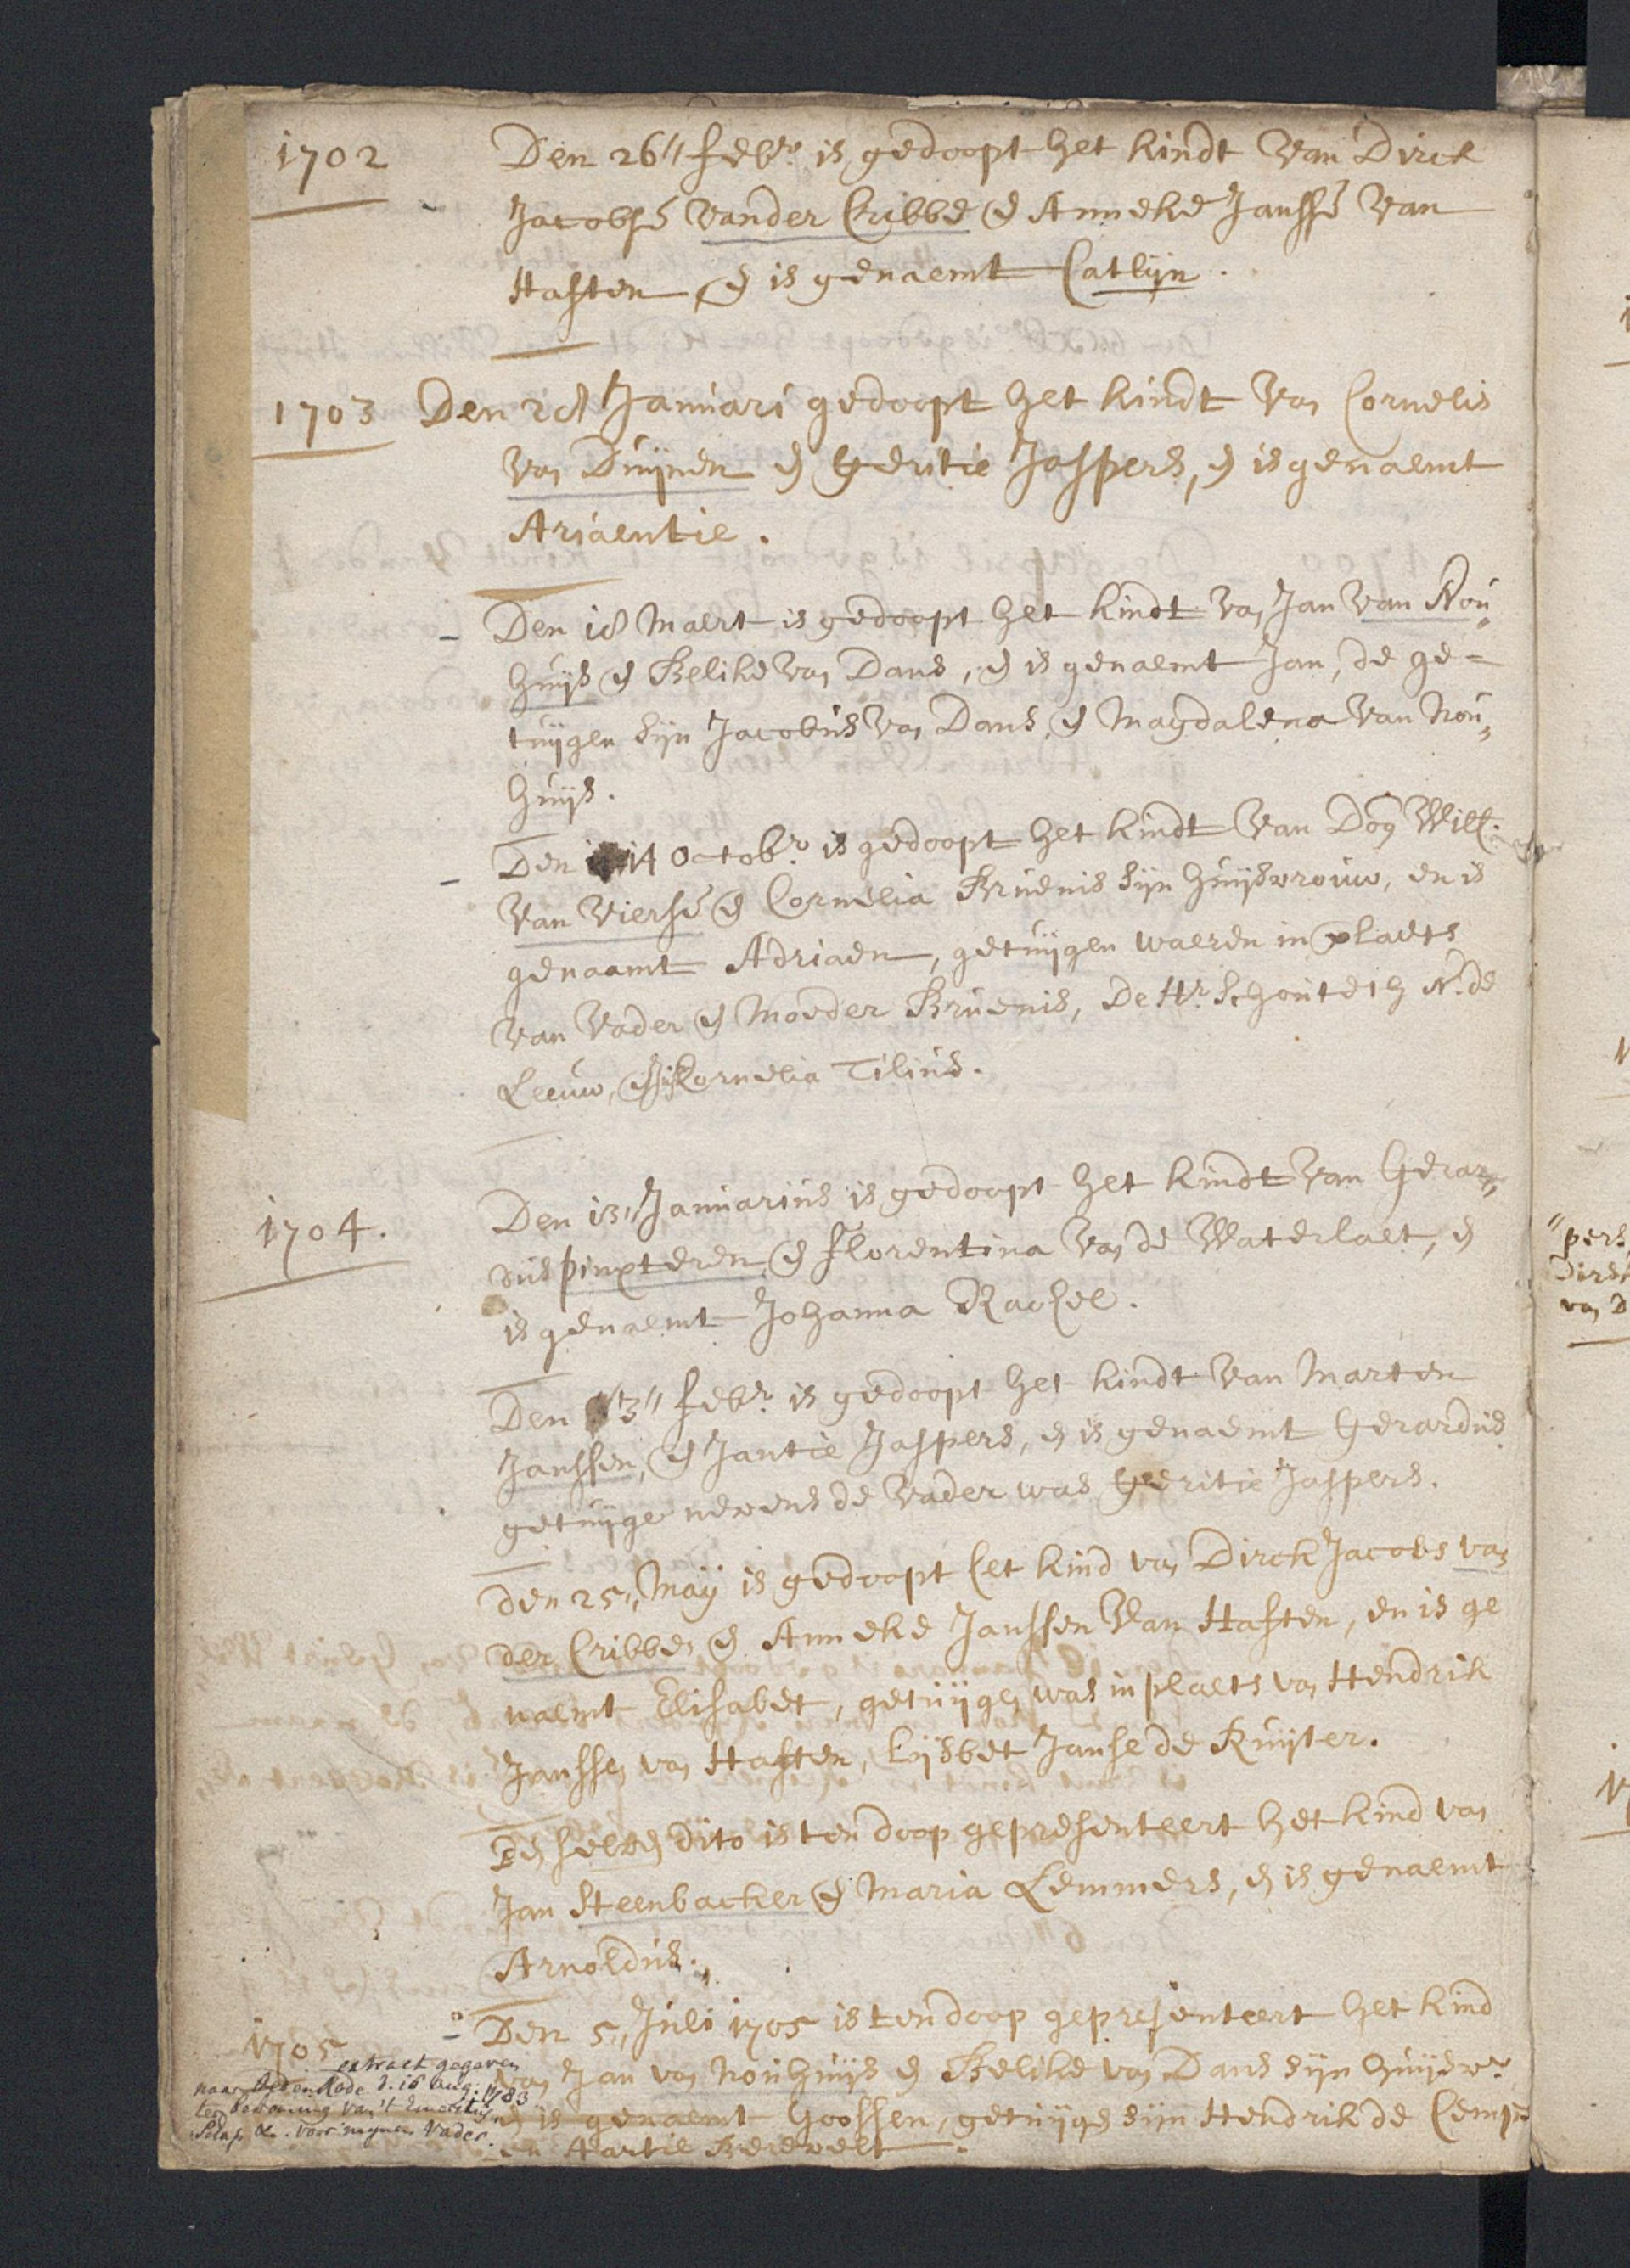 1702
Den 26" febr. is gedoopt het kindt van Dirck
Jacobse vander Cribbe & Anneke Jansse van
Haften, & is genaemt Catlijn.
1703
Den 28 Januari gedoopt het kindt van Cornelis
van Duijnen & Geritie Jaspers, & is genaemt
Ariaentie.
- Den 18 Maert is gedoopt het kindt van Jan van Nou„
huijs & Belike van Dans, & is genaemt Jan, de ge=
tuijgen sijn Jacobus van Dans, & Magdalena van Nou„
huijs.
- Den 14 Octobr. is gedoopt het kindt van Will.
van Vierse & Cornelia Bruenis sijn huijsvrouw, en is
genaamt Adriaen, getuijgen waeren in plaets
van Vader & Moeder Bruenis, De Hr. Schout N. de
Leeuw, Cornelia Tilius.
1704.
Den 13" Januarius is gedoopt het kindt van Gerar„
dus pinxteren & Florentina van de Waterlaet, &
is genaemt Johanna Rachel.
Den 3" febr. is gedoopt het kindt van Marten
Janssen, & Jantie Jaspers, & is genaemt Gerardus
getuijge nevens de Vader was Geritie Jaspers.
den 25„ Maij is gedoopt het kind van Dirck Jacobs van
der Cribbe, & Anneke Janssen van Haften, en is ge
naemt Elisabet, getuijgen was in plaets van Hendrik
Janssen van Haften, Lijsbet Janse de Ruijter.
Den selven dito is ten doop gepresenteert het kind van
Jan Steenbacker & Maria Lemmers, & is genaemt
Arnoldus.
1705
Den 5„ Juli 1705 is ten doop gepresenteert het kind
van Jan van Nouhuijs & Belike van Dans sijn huijsvr.
& is genaemt Goossen, getuijge sijn Hendrik de
en Aartie
extract gegeven
naar Rode d. 16 Aug. 1783
van 't
voor mijnen Vader.
"pers,
Dirk
van D